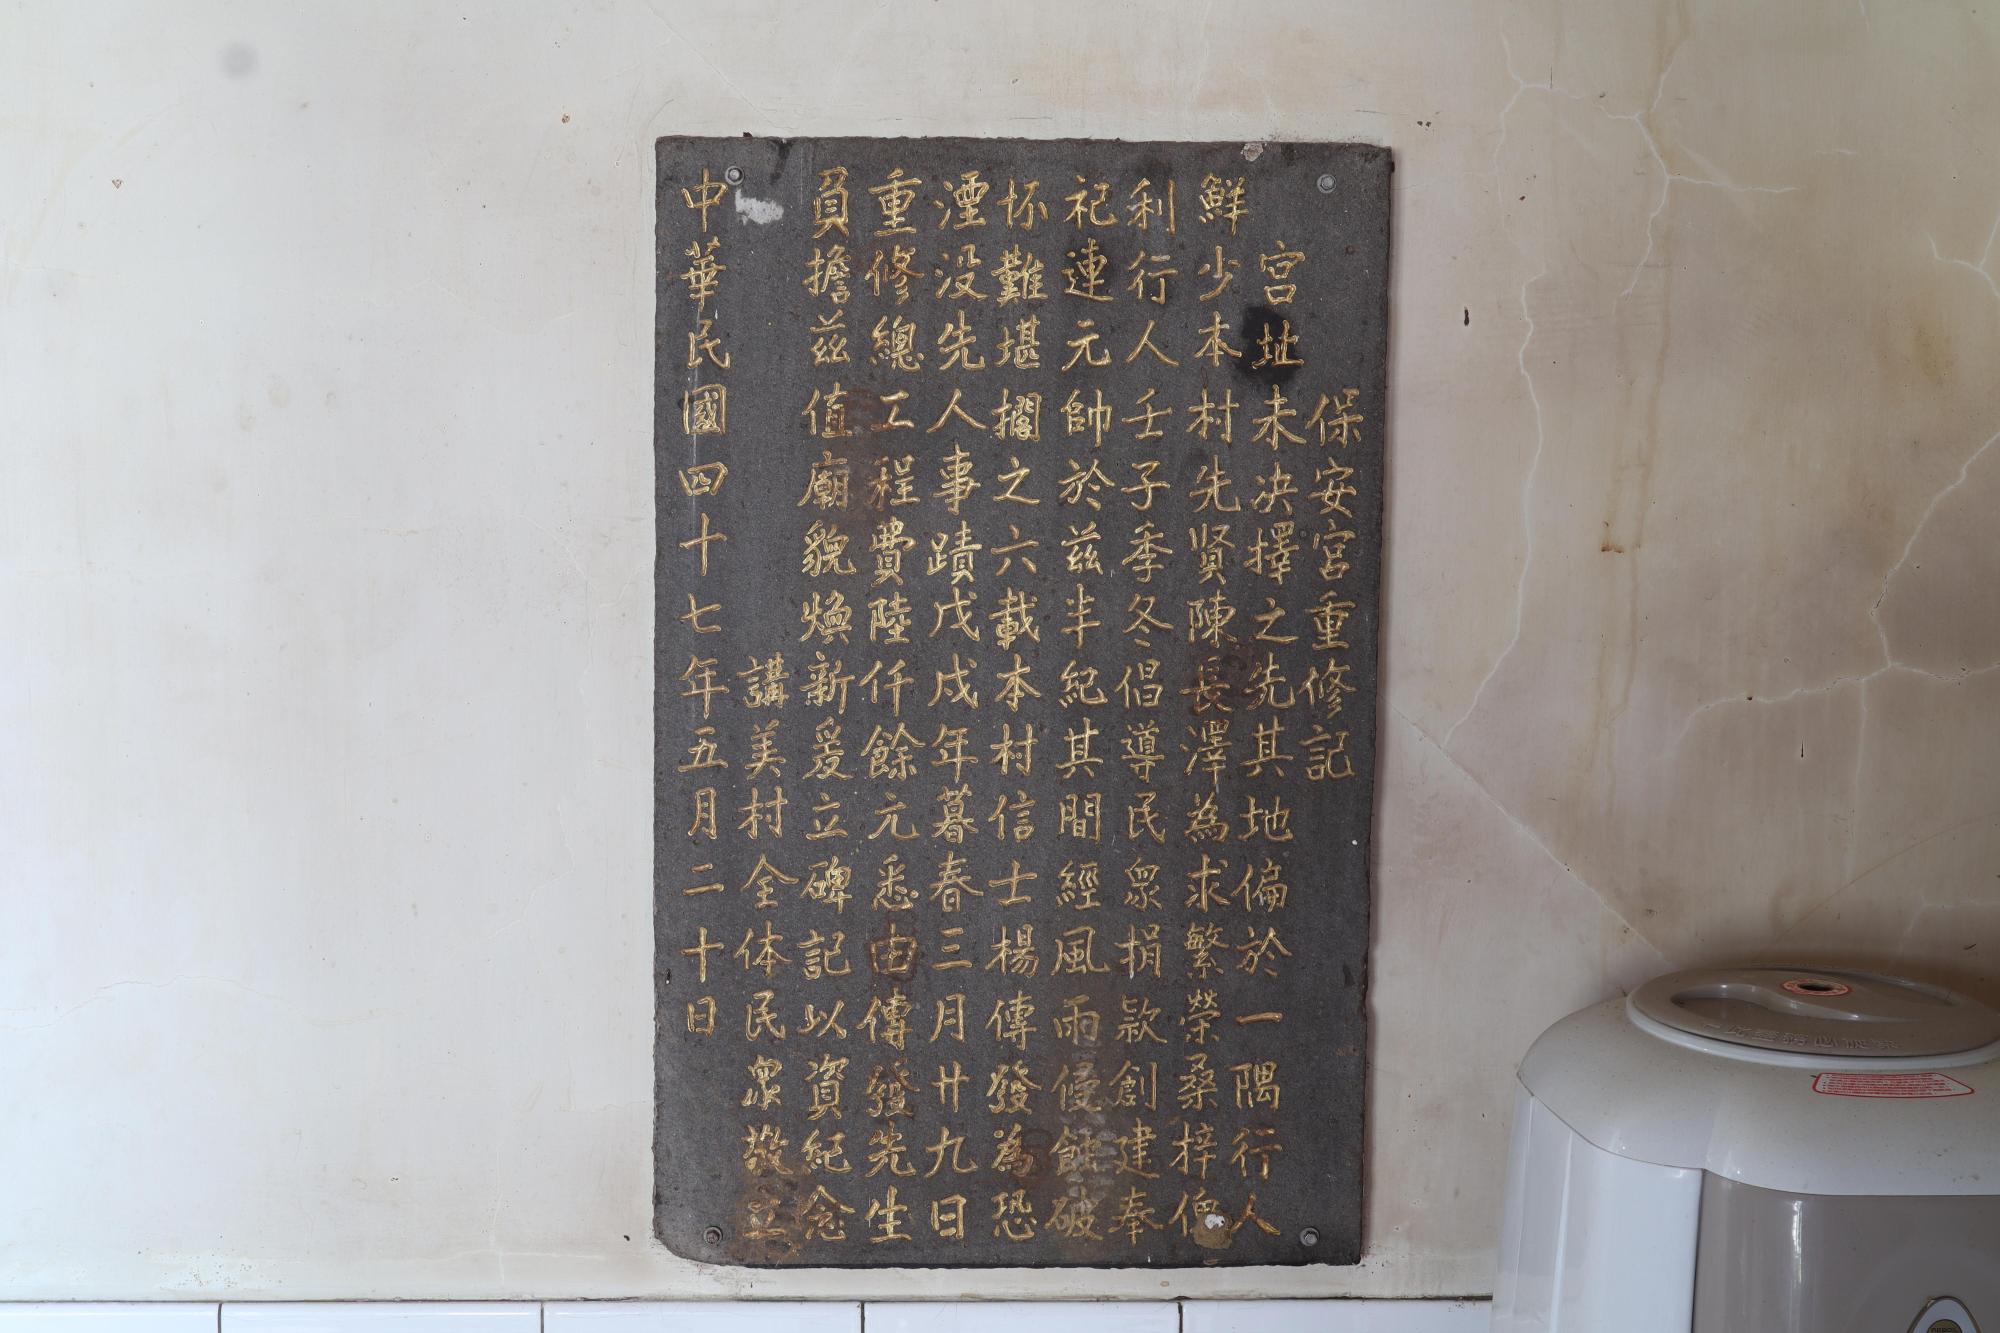 保安宮重修記
宮址未決擇之先其地偏於一隅行人
鮮少本村先賢陳長澤為求繁榮桑梓俾
利行人壬子季冬倡導民眾捐款創建奉
祀連元帥於茲半紀其間經風雨侵蝕破
坏難堪擱之六載本村信士楊傳發為恐
湮没先人事蹟戊戍年暮春三月廿九日
重修總工程費陸仟餘元悉由傳發先生
負擔茲值廟貌煥新爰立碑記以資紀念
講美村全体民眾敬立
中華民國四十七年五月二十日